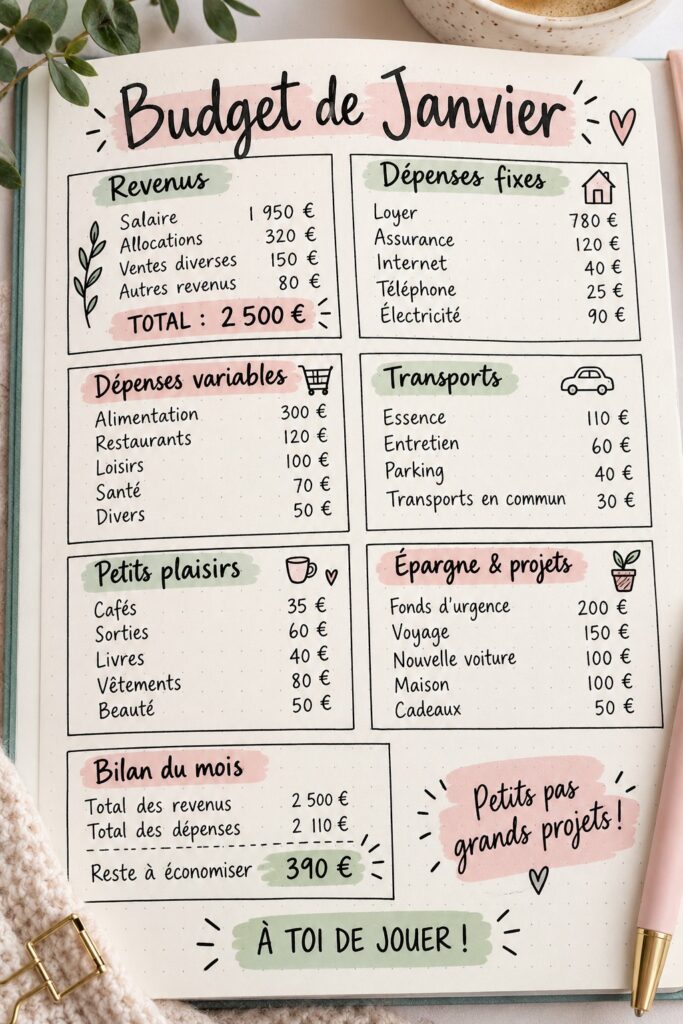 Budget de Janvier
Revenus
Salaire 1 950 €
Allocations 320 €
Ventes diverses 150 €
Autres revenus 80 €
TOTAL : 2 500 €
Dépenses fixes
Loyer 780 €
Assurance 120 €
Internet 40 €
Téléphone 25 €
Électricité 90 €
Dépenses variables
Alimentation 300 €
Restaurants 120 €
Loisirs 100 €
Santé 70 €
Divers 50 €
Transports
Essence 110 €
Entretien 60 €
Parking 40 €
Transports en commun 30 €
Petits plaisirs
Cafés 35 €
Sorties 60 €
Livres 40 €
Vêtements 80 €
Beauté 50 €
Épargne & projets
Fonds d'urgence 200 €
Voyage 150 €
Nouvelle voiture 100 €
Maison 100 €
Cadeaux 50 €
Bilan du mois
Total des revenus 2 500 €
Total des dépenses 2 110 €
Reste à économiser 390 €
Petits pas
grands projets !
À TOI DE JOUER !